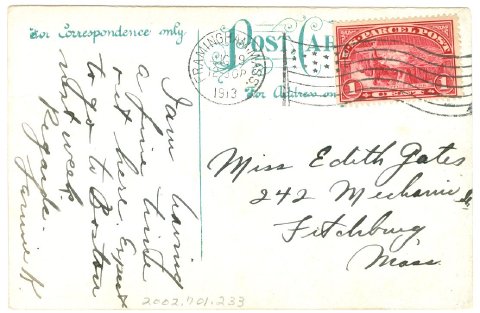 For Correspondence only
POST CARD
For Address on
FRAMINGHAM, MASS.
9
1913
U.S. PARCEL POST
1 CENT 1
I am having
a fine time
out here. Expect
to go to Boston
next week.
Regards.
Miss Edith Gates
242 Mechanic
Fitchburg
Mass.
2002.701.233